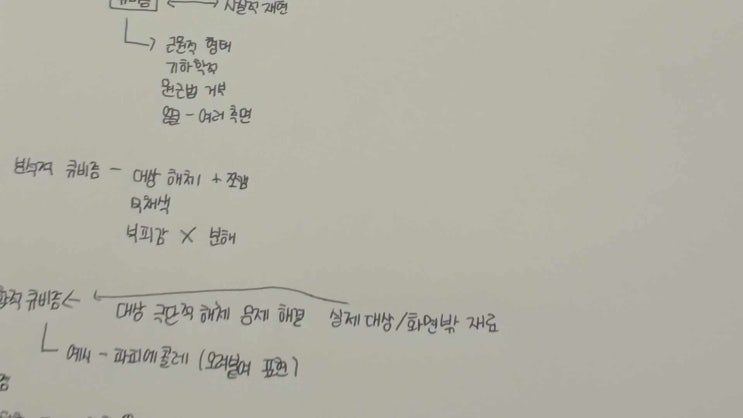 큐비즘 ←→ 사실적 재현
근원적 형태
기하학적
원근법 거부
여러 측면
분석적 큐비즘 - 대상 해체 + 조합
무채색
부피감 X 분해
합적 큐비즘 ← 대상 극단적 해체 문제 해결 실제 대상/화면밖 재료
예시 - 파피에콜레 (오려붙여 표현)